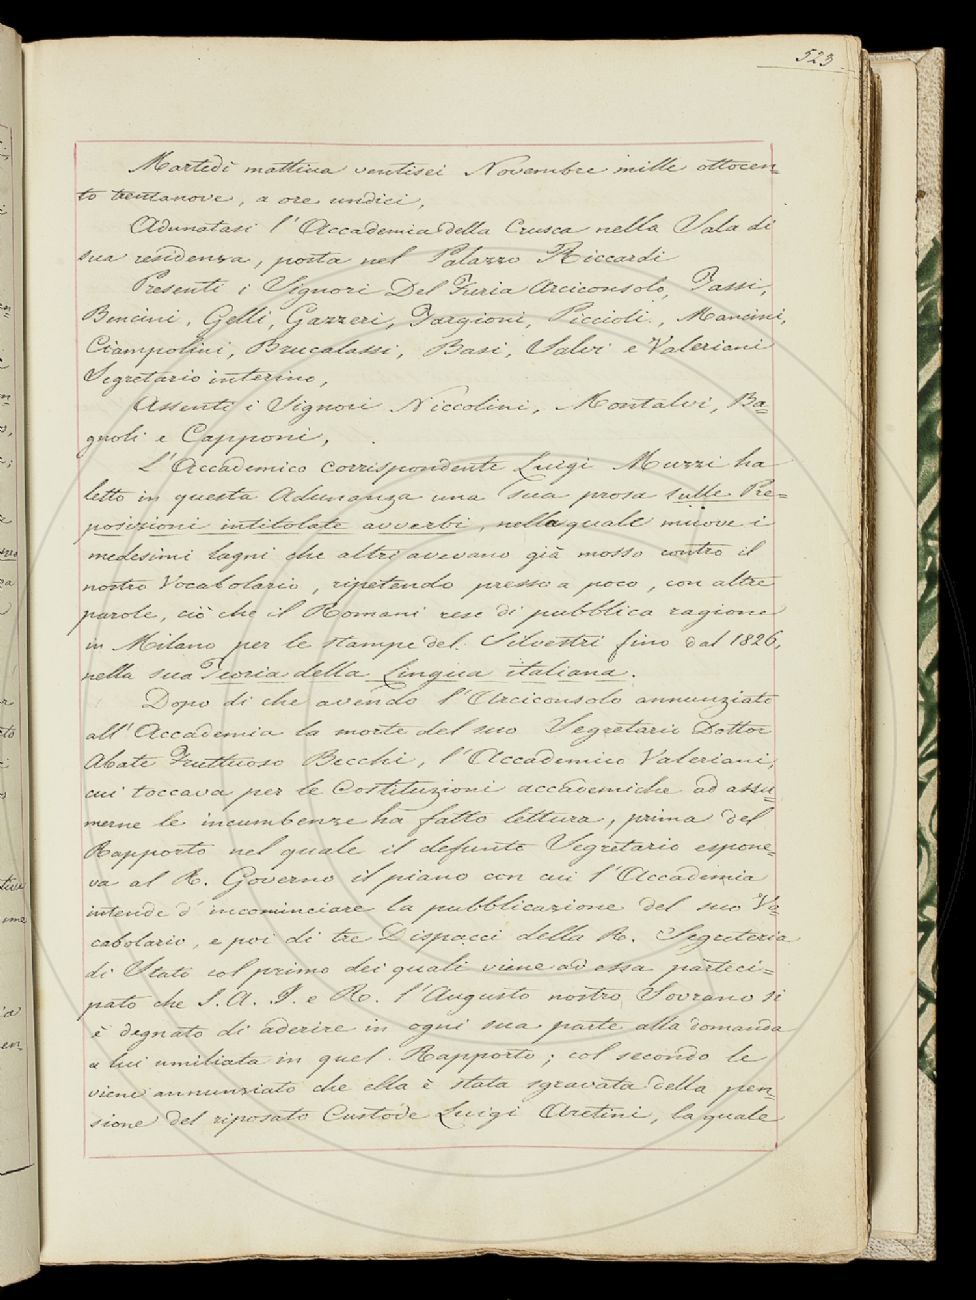 523
Martedì mattina ventisei Novembre mille ottocen=
to trentanove, a ore undici,
Adunatasi l'Accademia della Crusca nella Sala di
sua residenza, posta nel Palazzo Riccardi
Presenti i Signori Del Furia Arciconsolo, Tassi,
Bencini, Gelli, Gazzeri, Targioni, Piccioli, Mancini,
Ciampolini, Brucalassi, Basi, Salvi e Valeriani
Segretario interino,
Assenti i Signori Niccolini, Montalvi, Ba=
gnoli e Capponi,
L'Accademico corrispondente Luigi Muzzi ha
letto in questa Adunanza una sua prosa sulle Pre=
posizioni intitolate avverbi, nella quale muove i
medesimi lagni che altri avevano già mosso contro il
nostro Vocabolario, ripetendo presso a poco, con altre
parole, ciò che il Romani rese di pubblica ragione
in Milano per le stampe del Silvestri fino dal 1826,
nella sua Teoria della Lingua italiana.
Dopo di che avendo l'Arciconsolo annunziato
all'Accademia la morte del suo Segretario Dottor
Abate Fruttuoso Becchi, l'Accademico Valeriani,
cui toccava per le Costituzioni accademiche ad assu=
merne le incumbenze ha fatto lettura, prima del
Rapporto nel quale il defunto Segretario espone=
va al R. Governo il piano con cui l'Accademia
intende d'incominciare la pubblicazione del suo Vo=
cabolario, e poi di tre Dispacci della R. Segreteria
di Stato col primo dei quali viene ad essa parteci=
pato che S. A. I. e R. l'Augusto nostro Sovrano si
è degnato di aderire in ogni sua parte alla domanda
a lui umiliata in quel Rapporto; col secondo le
viene annunziato che ella è stata sgravata della pen=
sione del riposato Custode Luigi Aretini, la quale